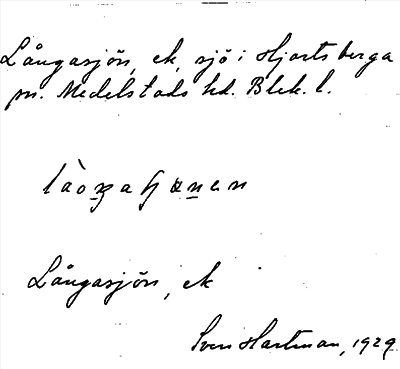 Långasjön, ek, sjö i Hjortsberga
sn. Medelstads hd. Blek. l.
Långasjön, ek
Sven Hartman, 1929